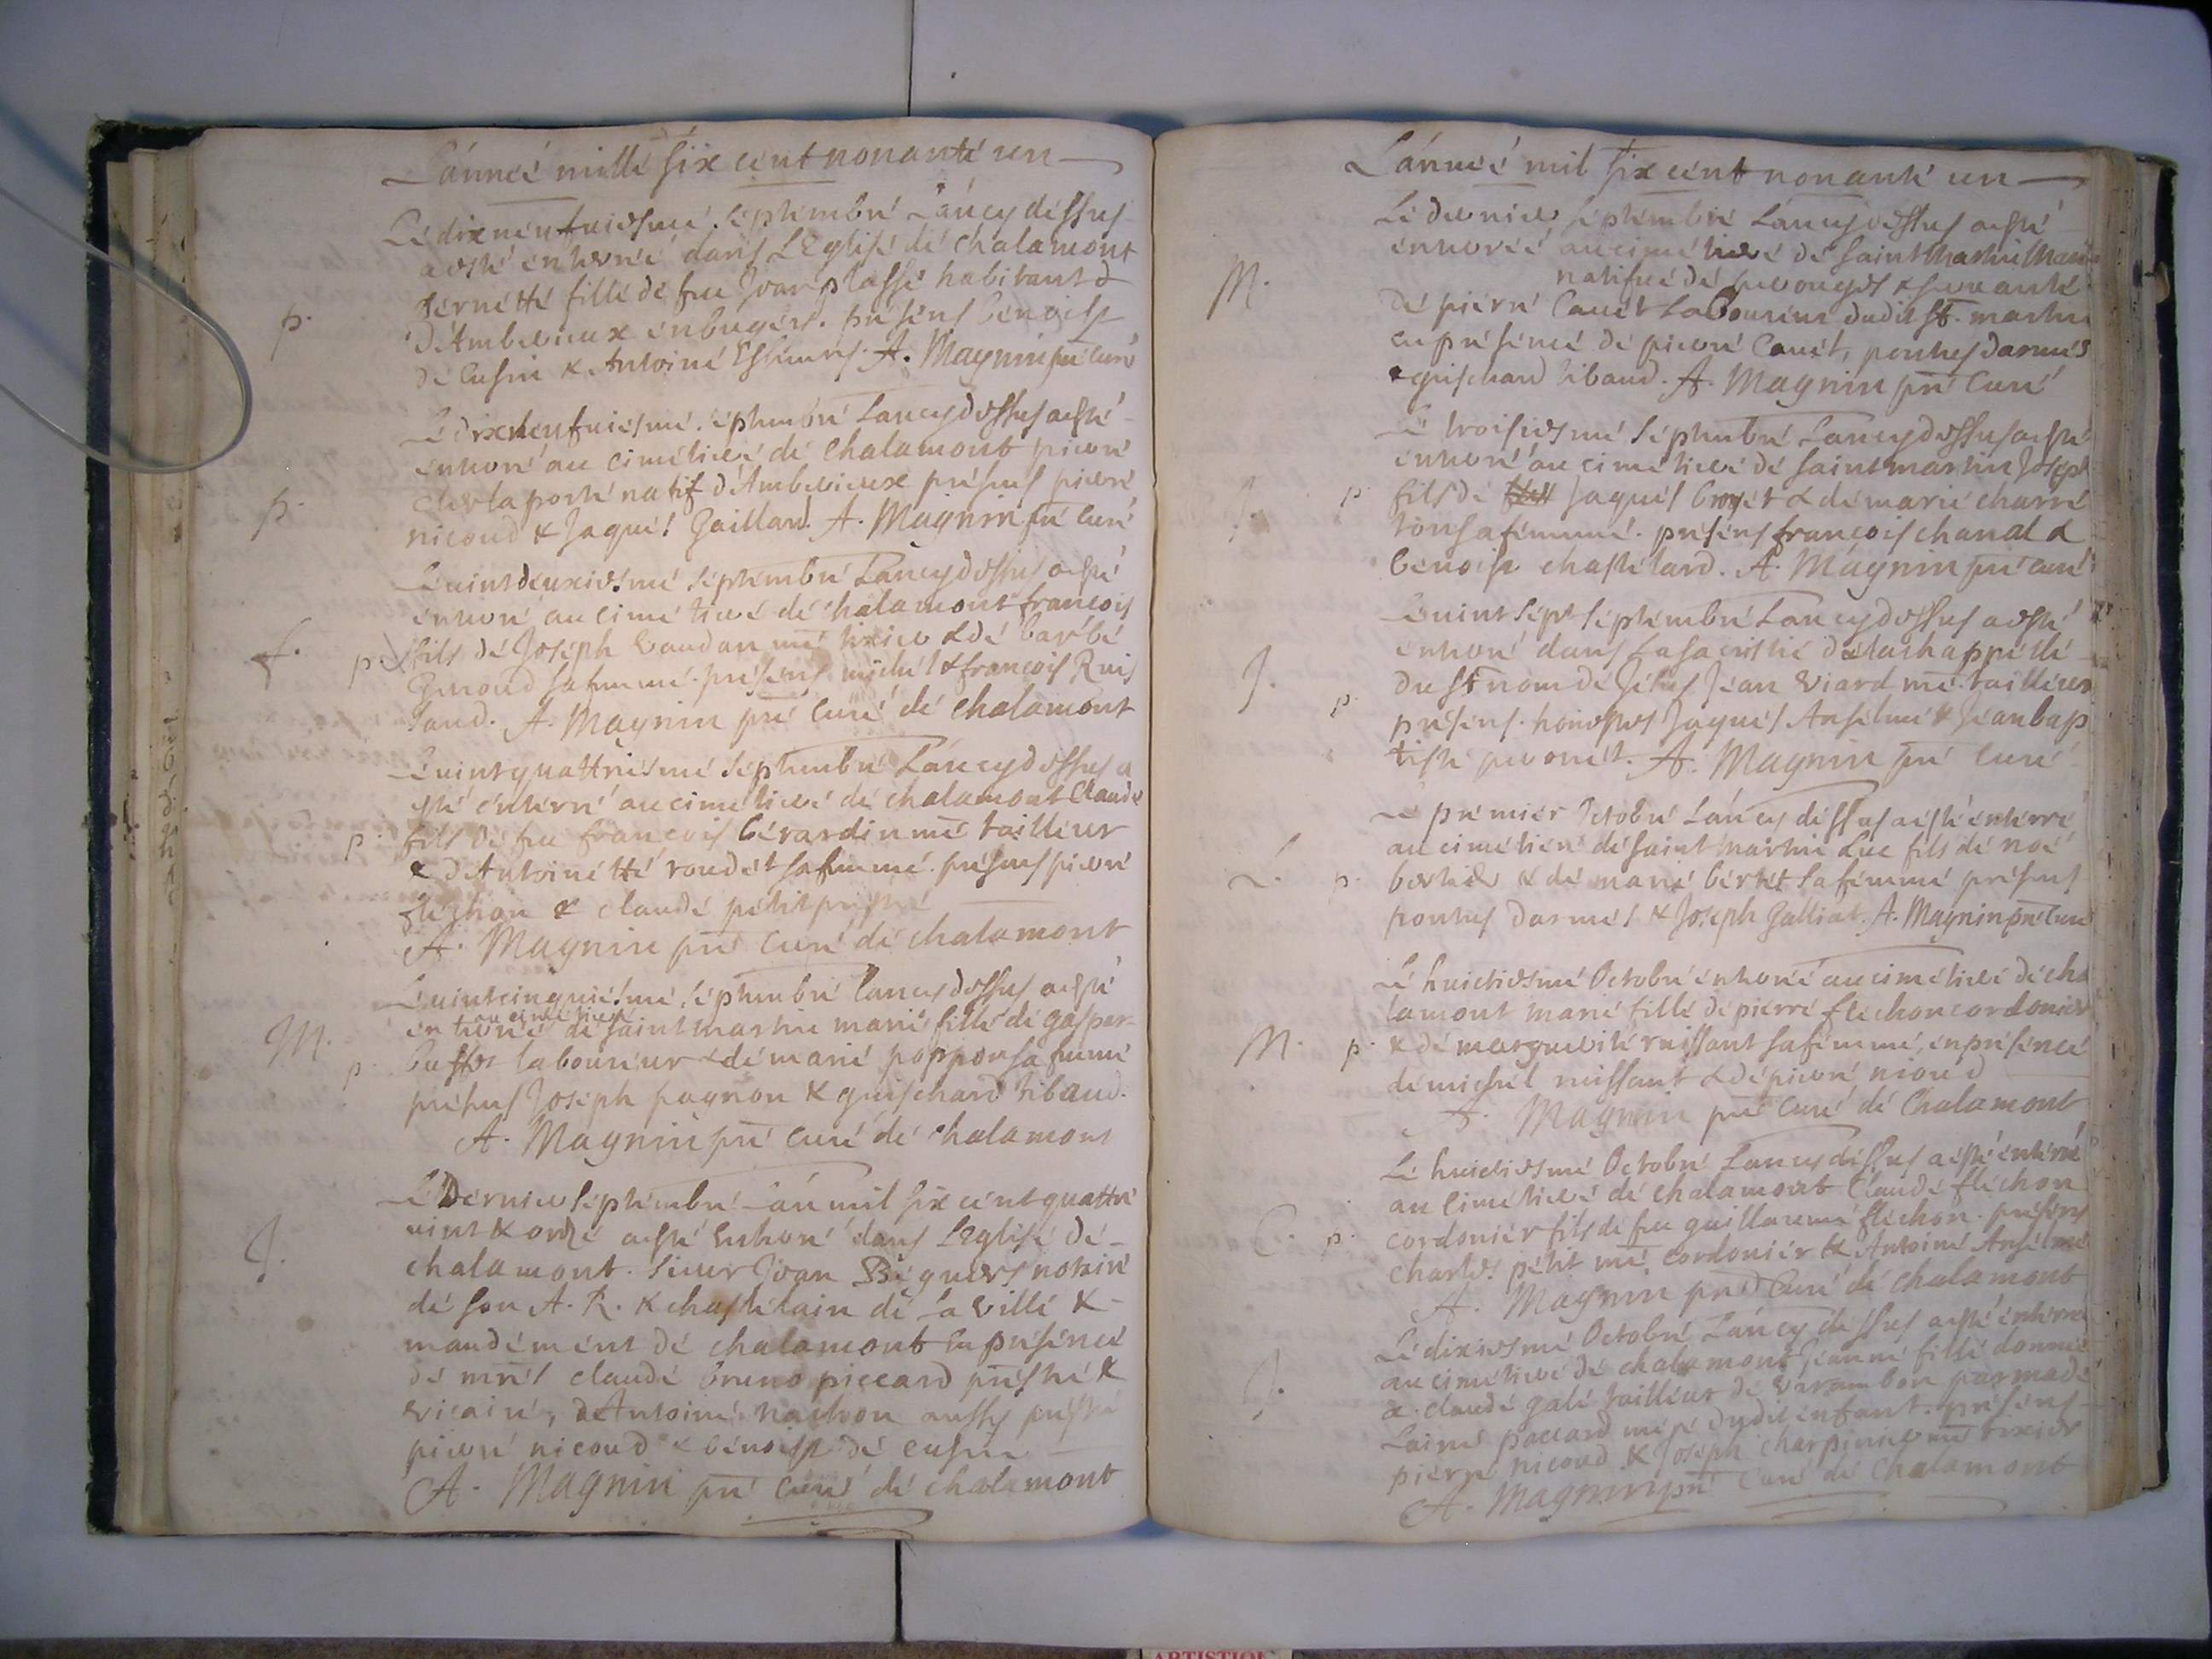 L'année mille six cent nonante un
Le dixneufuiesme septembre L'an cy dessus
a esté enterré dans L'Eglise de chalamont
pernette fille de feu Joan plasse habitant d
d'Ambrieux en bugers. présens benoist
de Cusin & Antoine A. Magnin pre curé
Le dixneufuiesme septembre L'an cy dessus a esté
enterré au cimetiere de chalamont pierre
claporte natif d'Ambrieux présens pierre
nicoud & Jaques Gaillard. A. Magnin pre curé
Le uint deuxiesme septembre L'an cy dessus a esté
enterré au cimetiere de chalamont francois
fils de Joseph Vaudan me & de barbe
Giroud sa femme. présens michel & francois Ruis
sand. A. Magnin pre curé de chalamont
Le uint quattriesme septembre L'an cy dessus a
esté enterré au cimetiere de chalamont Claude
fils de feu francois berardin me tailleur
& d'Antoinette roudet sa femme. présens pierre
fléchon & claude petit
A. Magnin pre curé de chalamont
Le uintcinquiesme septembre l'an cy dessus a esté
au cimetiere
enterré de saint martin marie fille de gaspar
labourieur & de marie poppon sa femme
présens Joseph pagnon & guischard tibaud.
A. Magnin pre curé de chalamont
Le Dernier septembre L'an mil six cent quattre
uint & onze a esté enterré dans L'Eglise de
chalamont. sieur Joan Béguers notaire
de son A. R. & chastelain de La ville &
mandement de chalamont en présence
de mres claude bruno piccard prestre &
vicaire, d'Antoine aussy prestre
pierre nicoud & benoist de cusin
A. Magnin pre curé de chalamont
L'année mil six cent nonante un
Le dernier septembre L'an cy dessus a esté
enterré au cimetiere de saint Martin
natifue de & seruante
de pierre Cauet Laboureur dudit st. martin
en présence de pierre Cauet, ponthus darmes
& guischard tibaud. A. Magnin pre curé
Le troisiesme septembre L'an cy dessus a esté
enterré au cimetiere de saint martin Joseph
fils de Jaques broyet & de marie charre
ton sa femme. présens francois chanal &
benoist chastelard. A. Magnin pre curé
Le uint sept septembre L'an cy dessus a esté
enterré dans La sacristie de la chappelle
du st nom de Jésus Jean Viard me tailleur
présens. honestes Jaques Anselme & Jean bap
tiste peronet. A. Magnin pre curé
Le premier Octobre L'an cy dessus a esté enterré
au cimetiere de saint martin Luc fils de noé
bertier & de marie bertet sa femme présens
ponthus darmes & Joseph Galliat. A. Magnin pre curé
Le huictiesme Octobre enterré au cimetiere de cha
lamont marie fille de pierre flechon cordonier
& de marguerite ruissant sa femme, en présence
de michel ruissant & de pierre nicoud
A. Magnin pre curé de chalamont
Le huictiesme Octobre L'an cy dessus a esté enterré
au cimetiere de chalamont Claude flechon
cordonier fils de feu guillaume flechon. présens
charles petit me cordonier & Antoine Anselme
A. Magnin pre curé de chalamont
Le dixiesme Octobre L'an cy dessus a esté enterré
au cimetiere de chalamont Jeanne fille donnée
a claude galé tailleur de Varambon par made
Laine paccard mere dudit enfant. présens
pierre nicoud & Joseph charpinier me tixier
A. Magnin pre curé de chalamont